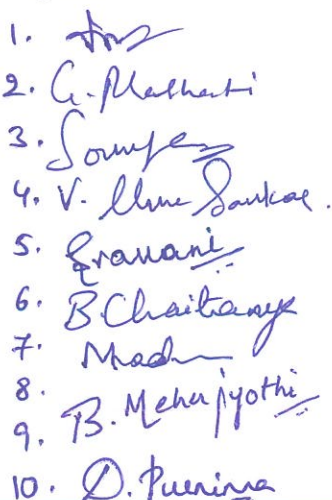 1.
2. G. Malhati
3. Sowmya
4. V. Uma Sankar.
5. Sravani
6. B. Chaitanya
7. Madhu
8.
9. B. Meher jyothi
10. D. Purnima